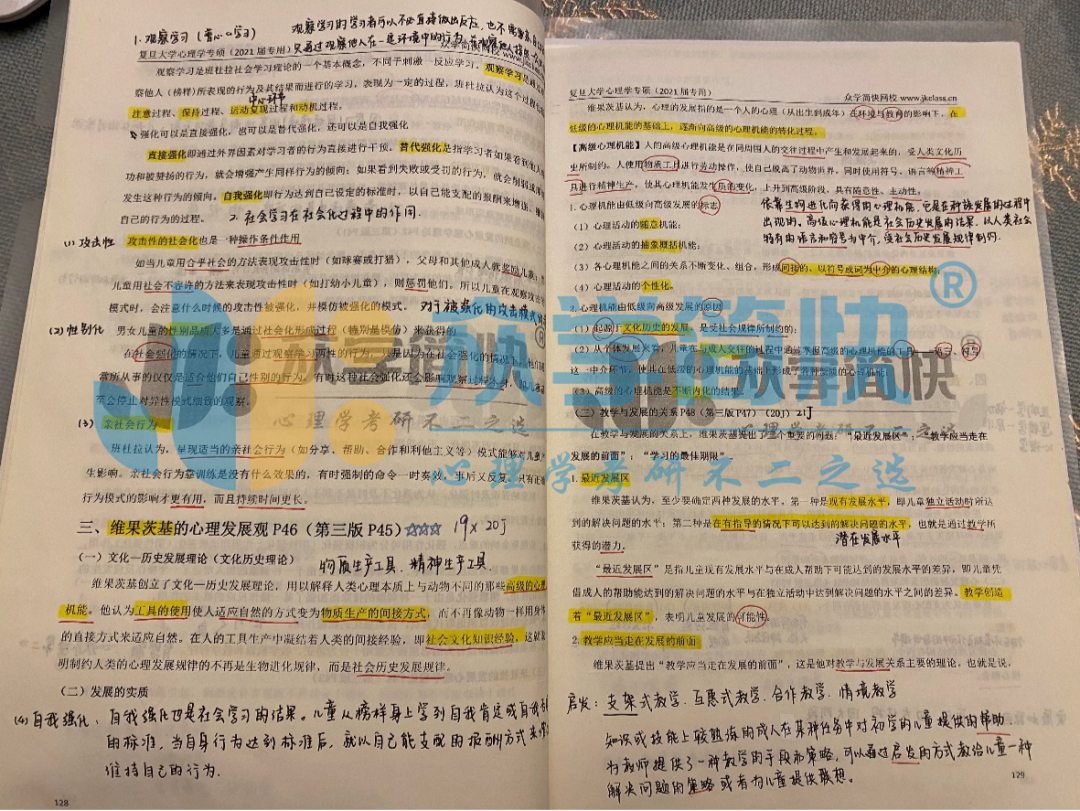 1. 观察学习（
观察学习的学习者可以不必直接做出反应，也不需
复旦大学心理学专硕（2021届专用）
只通过观察他人在一定环境中的行为
观察学习是班杜拉社会学习理论的一个基本概念，不同于刺激—反应学习，观察学习是
察他人（榜样）所表现的行为及其结果而进行的学习，表现为一定的过程，班杜拉认为这个过程
中心环节
注意过程、保持过程、运动复现过程和动机过程。
强化可以是直接强化，也可以是替代强化，还可以是自我强化
直接强化即通过外界因素对学习者的行为直接进行干预。替代强化是指学习者如果看到他人
功和被赞扬的行为，就会增强产生同样行为的倾向；如果看到失败或受罚的行为，就会削弱或
发生这种行为的倾向。自我强化即行为达到自己设定的标准时，以自己能支配的报酬来增强、
自己的行为的过程。
2. 社会学习在社会化过程中的作用.
(1) 攻击性
攻击性的社会化也是一种操作条件作用
如当儿童用合乎社会的方法表现攻击性时（如球赛或打猎），父母和其他成人就奖励儿童；
儿童用社会不容许的方法来表现攻击性时（如打幼小儿童），则惩罚他们。所以儿童在观察攻击
模式时，会注意什么时候的攻击性被强化，并模仿被强化的模式。
对于被强化的攻击模式
(2) 性别化
男女儿童的性别品质大多是通过社会化形成过程（特别是模仿）来获得的
在社会强化的情况下，儿童通过观察学习两性的行为，
常所从事的仅仅是适合他们自己性别的行为。有时这种社会强化还会影响观察过程
至会停止对异性模式细致的观察。
(3)
亲社会行为
班杜拉认为，呈现适当的亲社会行为（如分享、帮助、合作和利他主义等）模式能够对儿童
生影响。亲社会行为靠训练是没有什么效果的，有时强制的命令一时奏效，事后又反复。只有正
行为模式的影响才更有用，而且持续时间更长。
三、维果茨基的心理发展观 P46（第三版 P45）☆☆☆
19× 20J
（一）文化—历史发展理论（文化历史理论）
物质生产工具、精神生产工具.
维果茨基创立了文化—历史发展理论，用以解释人类心理本质上与动物不同的那些高级的心理
机能。他认为工具的使用使人适应自然的方式变为物质生产的间接方式，而不再像动物一样用身体
的直接方式来适应自然。在人的工具生产中凝结着人类的间接经验，即社会文化知识经验，这就
明制约人类的心理发展规律的不再是生物进化规律，而是社会历史发展规律。
（二）发展的实质
(4) 自我强化、自我强化也是社会学习的结果。儿童从榜样身上学到自我肯定或自我
的标准，当自身行为达到标准后，就以自己能支配的报酬方式来
维持自己的行为.
128
复旦大学心理学专硕（2021届专用）
众学简快网校 www.jkclass.cn
维果茨基认为，心理的发展指的是一个人的心理（从出生到成年）在环境与教育的影响下，在
低级的心理机能的基础上，逐渐向高级的心理机能的转化过程。
【高级心理机能】人的高级心理机能是在同周围人的交往过程中产生和发展起来的，受人类文化历
史所制约。人使用物质工具进行劳动操作，使自己脱离了动物世界，同时使用符号、语言等精神工
具进行精神生产，使其心理机能发生质的变化，上升到高级阶段，具有随意性、主动性。
1. 心理机能由低级向高级发展的标志
依靠生物进化而获得的心理机能，它是在种族发展的过程中
出现的。高级心理机能是社会历史发展的结果，以人类社会
特有的语言和符号为中介，受社会历史发展规律制约.
（1）心理活动的随意机能；
（2）心理活动的抽象概括机能；
（3）各心理机能之间的关系不断变化、组合，形成间接的、以符号或词为中介的心理结构；
（4）心理活动的个性化。
2. 心理机能由低级向高级发展的原因
（1）起源于文化历史的发展，是受社会规律所制约的；
（2）从个体发展来看，儿童在与成人交往的过程中通过掌握高级的心理机能的工具——语言、符号
这一中介环节，使其在低级的心理机能的基础上形成了各种新质的心理机能；
（3）高级的心理机能是不断内化的结果。
（三）教学与发展的关系 P48（第三版 P47）（20J）21J
在教学与发展的关系上，维果茨基提出了三个重要的问题：“最近发展区”、教学应当走在
发展的前面”；“学习的最佳期限”
1. 最近发展区
维果茨基认为，至少要确定两种发展的水平。第一种是现有发展水平，即儿童独立活动时所达
到的解决问题的水平；第二种是在有指导的情况下可以达到的解决问题的水平，也就是通过教学所
获得的潜力。
潜在发展水平
“最近发展区”是指儿童现有发展水平与在成人帮助下可能达到的发展水平的差异，即儿童凭
借成人的帮助能达到的解决问题的水平与在独立活动中达到解决问题的水平之间的差异。教学创造
着“最近发展区”，表明儿童发展的可能性。
2. 教学应当走在发展的前面
维果茨基提出“教学应当走在发展的前面”，这是他对教学与发展关系主要的理论，也就是说，
启发：支架式教学、互惠式教学、合作教学、情境教学
知识或技能上较熟练的成人在某种任务中对初学的儿童提供的帮助.
为教师提供了一种教学的手段和策略，可以通过启发的方式教给儿童一种
解决问题的策略或者为儿童提供联想。
129
众学简快®
心理学考研不二之选
众学简快
心理学考研不二之选
众学简快
不二之选